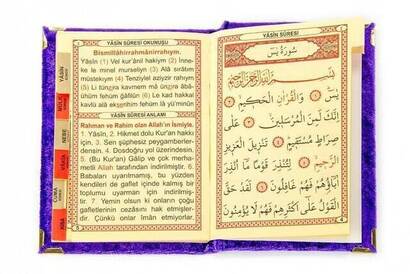 YÂSÎN SÛRESİ OKUNUŞU
Bismillâhirrahmânirrahıym.
Yâsîn (1) Vel kur'ânil hakiym (2) İnne-
ke le minel murseliyn (3) Alâ sırâtım
müstekıym (4) Tenziylel aziyzir rahıym
(5) Li tünzira kavmem mâ ünzira âbâ-
ühüm fehüm ğâfilûn (6) Le kad hakkal
kavlü alâ ekserihim fehüm lâ yü'minûn
YÂSÎN SÛRESİ ANLAMI
Rahman ve Rahim olan Allah'ın ismiyle.
1. Yâsîn, 2. Hikmet dolu Kur'an hakkı
için, 3. Sen şüphesiz peygamberler-
densin. 4. Dosdoğru yol üzerindesin.
5. (Bu Kur'an) Galip ve çok merha-
metli Allah tarafından indirilmiştir. 6.
Babaları uyarılmamış, bu yüzden
kendileri de gaflet içinde kalmış bir
toplumu uyarman için indirilmiş-
tir. 7 Yemin olsun ki onların çoğu
gafletlerinin cezasını hak etmişler-
dir. Çünkü onlar îman etmiyorlar.
YÂSÎN
MÜLK
NEBE
VÂKIA
CUMA
سُورَةُ يٰسٓ
بِسْمِ اللّٰهِ الرَّحْمٰنِ الرَّحٖيمِ
يٰسٓ ﴿١﴾ وَالْقُرْاٰنِ الْحَكٖيمِ ﴿٢﴾
اِنَّكَ لَمِنَ الْمُرْسَلٖينَ ﴿٣﴾ عَلٰى
صِرَاطٍ مُسْتَقٖيمٍ ﴿٤﴾ تَنْزٖيلَ الْعَزٖيزِ
الرَّحٖيمِ ﴿٥﴾ لِتُنْذِرَ قَوْمًا مَٓا اُنْذِرَ
اٰبَٓاؤُهُمْ فَهُمْ غَافِلُونَ ﴿٦﴾ لَقَدْ حَقَّ
الْقَوْلُ عَلٰٓى اَكْثَرِهِمْ فَهُمْ لَا يُؤْمِنُونَ